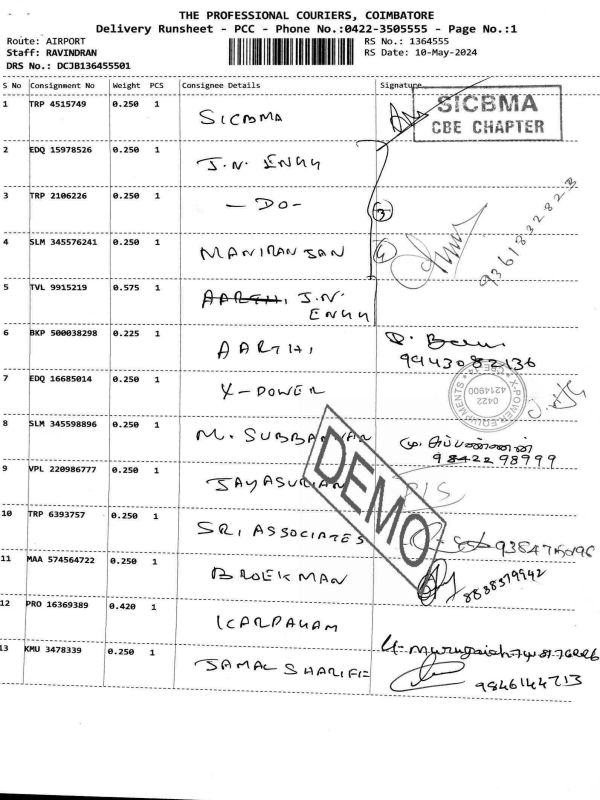 THE PROFESSIONAL COURIERS, COIMBATORE
Delivery Runsheet - PCC - Phone No.:0422-3505555 - Page No.:1
Route: AIRPORT RS No.: 1364555
Staff: RAVINDRAN RS Date: 10-May-2024
DRS No.: DCJB136455501
S No Consignment No Weight PCS Consignee Details Signature
1 TRP 4515749 0.250 1 SICBMA
SICBMA
CBE CHAPTER
2 EDQ 15978526 0.250 1 J.N. ENGG
3 TRP 2106226 0.250 1 - DO - 3
4 SLM 345576241 0.250 1 MANIRANJAN 4
9361832828
5 TVL 9915219 0.575 1 AARTHI, J.N.
ENGG
6 BKP 500038298 0.225 1 AARTHI
9943082136
7 EDQ 16685014 0.250 1 X-POWER
X-POWER EQUIPMENTS * CBE
0422
4214900
8 SLM 345598896 0.250 1 M. SUBBANNAN மு. சுப்பண்ணன்
98422 98999
9 VPL 220986777 0.250 1 JAYASURIAN
DEMO
10 TRP 6393757 0.250 1 SRI ASSOCIATES
11 MAA 574564722 0.250 1 BROEKMAN 8838379942
12 PRO 16369389 0.420 1 KARPAGAM
13 KMU 3478339 0.250 1 JAMAL SHARIFF
9846144713